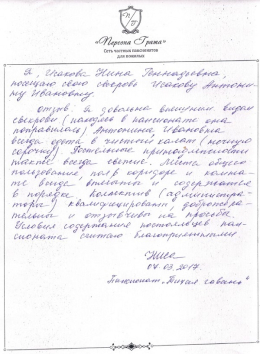 «Персона Грата»
Сеть частных пансионатов
для пожилых
Я, Исакова Жанна Геннадьевна,
посещаю свою свекровь Исакову Антони-
ну Ивановну.
Отзыв. Я довольна внешним видом
свекрови (находясь в пансионате она
поправилась) Антонина Ивановна
всегда одета в чистый халат (ночную
сорочку) Постельные принадлежности
также всегда свежие. Места общего
пользования, пол в коридоре и комна-
те всегда и содержатся
в порядке. Коллектив (администра-
тора) квалифицирован, доброжела-
тельны и отзывчивы на просьбы.
Условия содержание постояльцев пан-
сионата считаю благоприятными.
04.03.2017.
Пансионат „Тихая гавань"